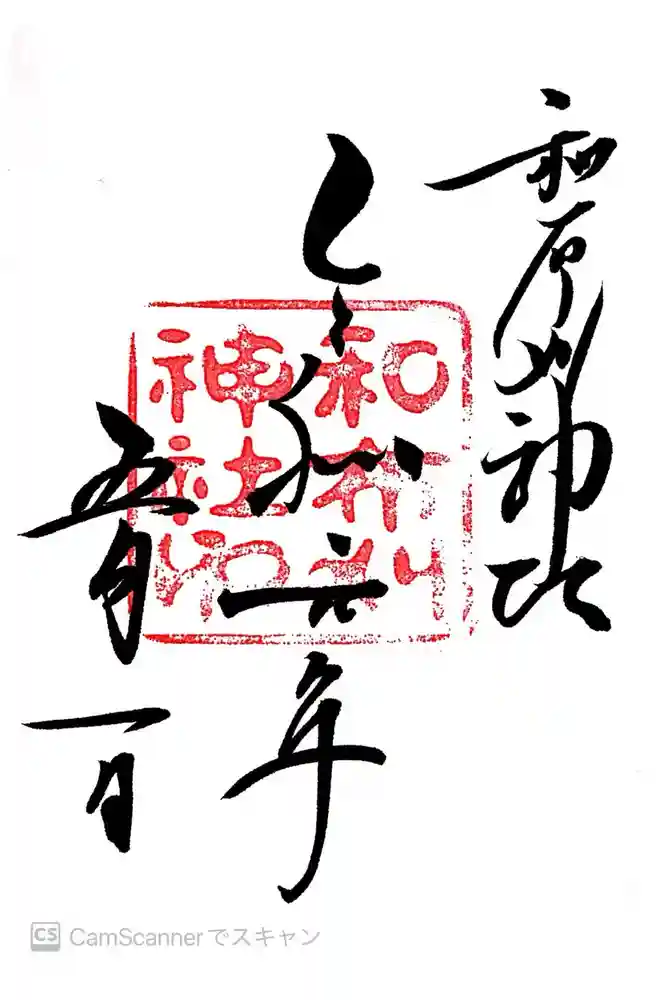 和布刈神社
令和六年
五月一日
和布刈
神社印
CS CamScannerでスキャン